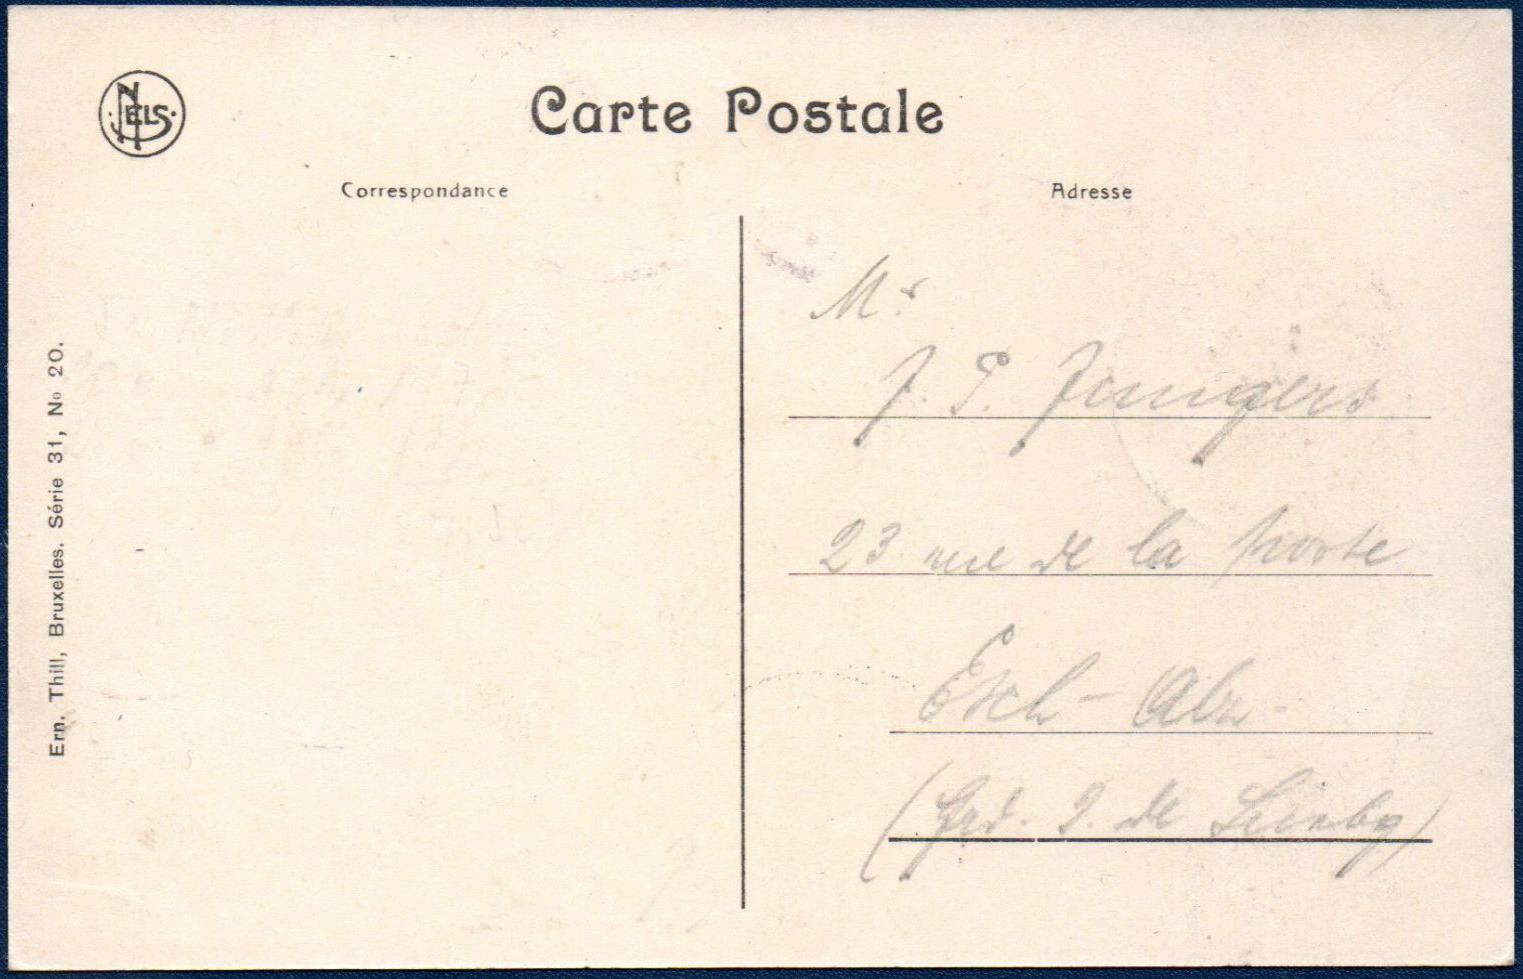 NELS
Carte Postale
Correspondance
Adresse
Ern. Thill, Bruxelles. Série 31, No 20.
Mr
J. P. Jungers
23 rue de la Poste
Esch - Alz -
(Grd. D. de Luxbg)